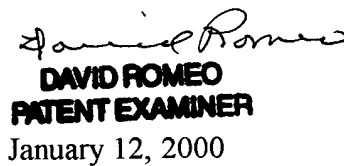 David Romeo
DAVID ROMEO
PATENT EXAMINER
January 12, 2000